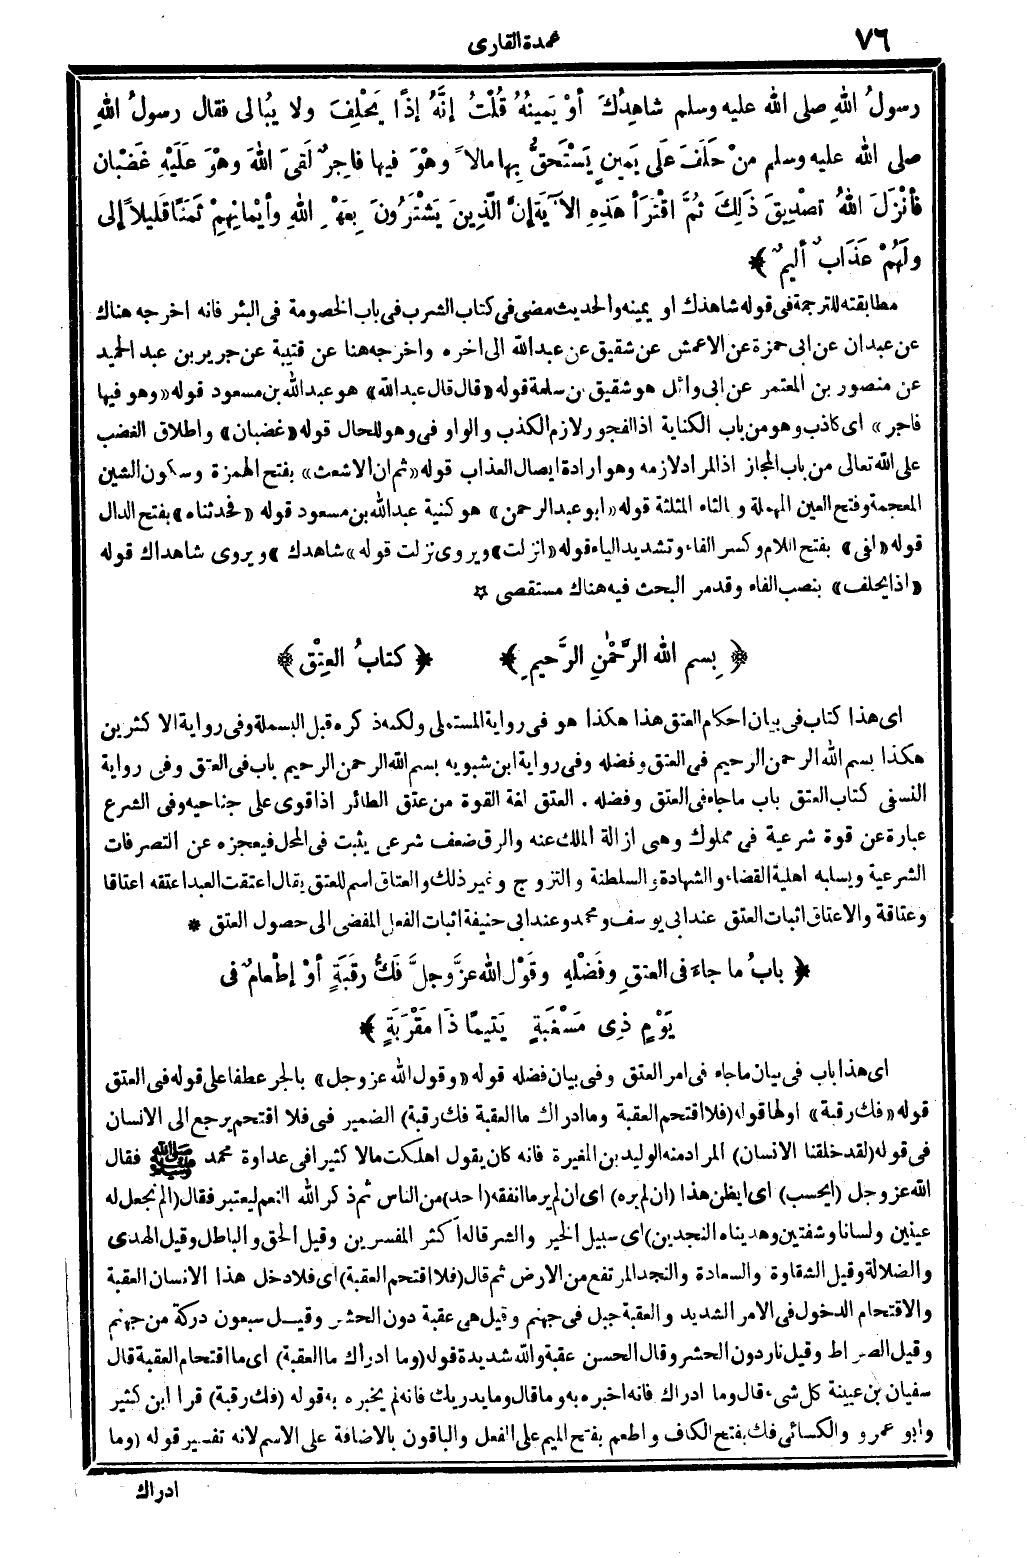 ٧٦
عمدة القارى
رسولُ اللهِ صلى الله عليه وسلم شاهِدُكَ أوْ يَمِينُهُ قُلْتُ إنَّهُ إذًا يَحْلِفَ ولا يُبالى فقال رسولُ اللهِ
صلى الله عليه وسلم مَنْ حَلَفَ عَلَى يَمِينٍ يَسْتَحِقُّ بِها مالاً وهْوَ فيها فاجِرٌ لَقِىَ اللهَ وهْوَ عَلَيْهِ غَضْبان
فأنْزَلَ اللهُ تصْدِيقَ ذَلِكَ ثُمَّ اقْتَرَأ هَذِهِ الآيَةَ إنَّ الَّذِينَ يَشْتَرُونَ بِعَهْدِ اللهِ وأيْمانِهِمْ ثَمَنًا قَلِيلاً إلى
ولَهُمْ عَذَابٌ أليمٌ ﴾
مطابقته للترجمة فى قوله شاهدك او يمينه والحديث مضى فى كتاب الشرب فى باب الخصومة فى البئر فانه اخرجه هناك
عن عبدان عن ابى حمزة عن الاعمش عن شقيق عن عبدالله الى اخره واخرجه هنا عن قتيبة عن جرير بن عبد الحميد
عن منصور بن المعتمر عن ابى وائل هو شقيق بن سلمة قوله «قال قال عبدالله» هو عبدالله بن مسعود قوله «وهو فيها
فاجر» اى كاذب وهو من باب الكناية اذ الفجور لازم الكذب والواو فى وهو للحال قوله «غضبان» واطلاق الغضب
على الله تعالى من باب المجاز اذ المراد لازمه وهو ارادة ايصال العذاب قوله «ثم ان الاشعث» بفتح الهمزة وسكون الشين
المعجمة وفتح العين المهملة و بالثاء المثلثة قوله «ابو عبد الرحمن» هو كنية عبدالله بن مسعود قوله «فحدثناه» بفتح الدال
قوله «لفى» بفتح اللام وكسر الفاء وتشديد الياء قوله «انزلت» ويروى نزلت قوله «شاهدك» ويروى شاهداك قوله
«اذا يحلف» بنصب الفاء وقد مر البحث فيه هناك مستقصى ☆
﴿ بِسم الله الرَّحْمٰنِ الرَّحيمِ ﴾ ﴿ كتابُ العِتْق ﴾
اى هذا كتاب فى بيان احكام العتق هذا هكذا هو فى رواية المستملى ولكنه ذكره قبل البسملة وفى رواية الاكثرين
هكذا بسم الله الرحمن الرحيم فى العتق وفضله وفى رواية ابن شبويه بسم الله الرحمن الرحيم باب فى العتق وفى رواية
النسفى كتاب العتق باب ماجاء فى العتق وفضله . العتق لغة القوة من عتق الطائر اذا قوى على جناحيه وفى الشرع
عبارة عن قوة شرعية فى مملوك وهى ازالة الملك عنه والرق ضعف شرعى يثبت فى المحل فيعجزه عن التصرفات
الشرعية ويسلبه اهلية القضاء والشهادة والسلطنة والتزوج وغير ذلك والعتاق اسم للعتق يقال اعتقت العبد اعتقه اعتاقا
وعتاقة والاعتاق اثبات العتق عند ابى يوسف ومحمد وعند ابى حنيفة اثبات الفعل المفضى الى حصول العتق *
﴿ بابُ ما جاءَ فى العتقِ وفَضْلِهِ وقَوْلِ الله عزَّ وجلَّ فَكُّ رقَبَةٍ أوْ إطْعامٌ فى
يَوْمٍ ذِى مَسْغَبَةٍ يَتيمًا ذَا مَقْرَبَةٍ ﴾
اى هذا باب فى بيان ماجاء فى امر العتق وفى بيان فضله قوله «وقول الله عز وجل» بالجر عطفا على قوله فى العتق
قوله «فك رقبة» اولها قوله (فلا اقتحم العقبة وما ادراك ما العقبة فك رقبة) الضمير فى فلا اقتحم يرجع الى الانسان
فى قوله (لقد خلقنا الانسان) المراد منه الوليد بن المغيرة فانه كان يقول اهلكت مالا كثيرا فى عداوة محمد ﷺ فقال
الله عز وجل (ايحسب) اى ايظن هذا (ان لم يره) اى ان لم يرما انفقه (احد) من الناس ثم ذكر الله النعم ليعتبر فقال (الم نجعل له
عينين ولسانا وشفتين وهديناه النجدين) اى سبيل الخير والشر قاله أكثر المفسرين وقيل الحق والباطل وقيل الهدى
والضلالة وقيل الشقاوة والسعادة والنجد المرتفع من الارض ثم قال (فلا اقتحم العقبة) اى فلا دخل هذا الانسان العقبة
والاقتحام الدخول فى الامر الشديد والعقبة جبل فى جهنم وقيل هى عقبة دون الحشر وقيل سبعون دركة من جهنم
وقيل الصراط وقيل نار دون الحشر وقال الحسن عقبة والله شديدة قوله (وما ادراك ما العقبة) اى ما اقتحام العقبة قال
سفيان بن عيينة كل شىء قال وما ادراك فانه اخبره به وما قال وما يدريك فانه لم يخبره به قوله (فك رقبة) قرا ابن كثير
وابو عمرو والكسائى فك بفتح الكاف واطعم بفتح الميم على الفعل والباقون بالاضافة على الاسم لانه تفسير قوله (وما
ادراك